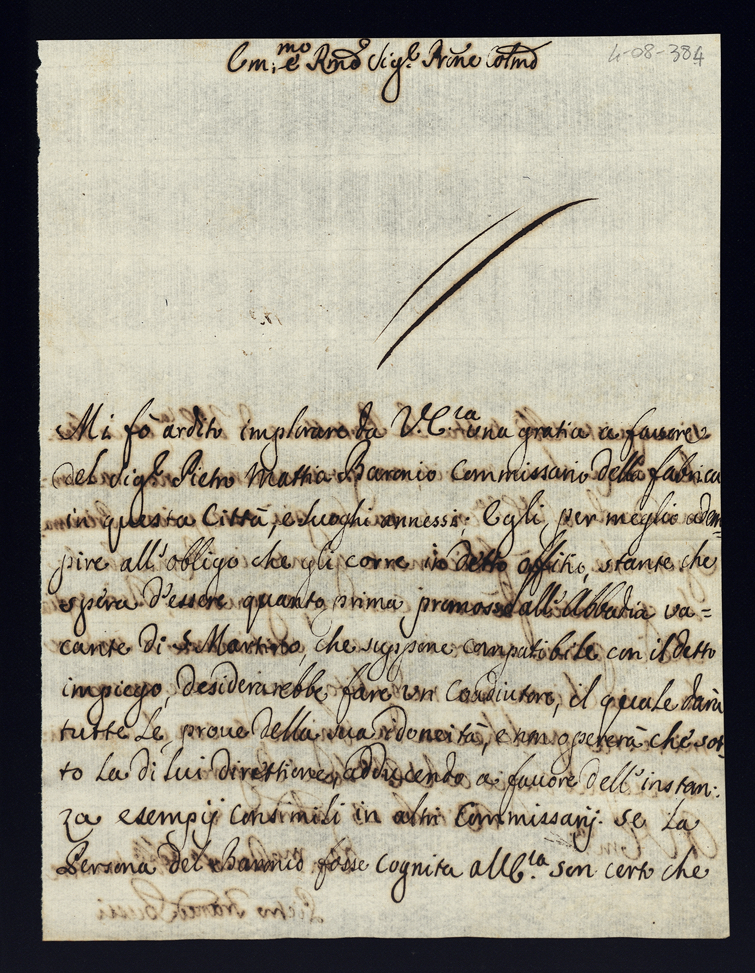 Em.mo e Rmo Sig.r Prone Colmo
4-08-384
Mi fò ardito implorare da V.E.za una gratia a fauore
del Sig.r Pietro Matthia Baronio Commissario della fabrica
in questa Città, e luoghi annessi; Egli per meglio adem-
pire all'obligo che gli corre in detto offitio, stante che
spera d'essere quanto prima promosso all'Abbadia va=
cante di S Martino, che suppone compatibile con il detto
impiego, desiderarebbe fare un Coadiutore, il quale darà
tutte le prove della sua idoneità, e non opererà che sot
to la di lui direttione, adducendo a fauore dell'instan:
za esempij consimili in altri Commissarij. Se la
Persona del Baronio fosse cognita all'E.za son certo che